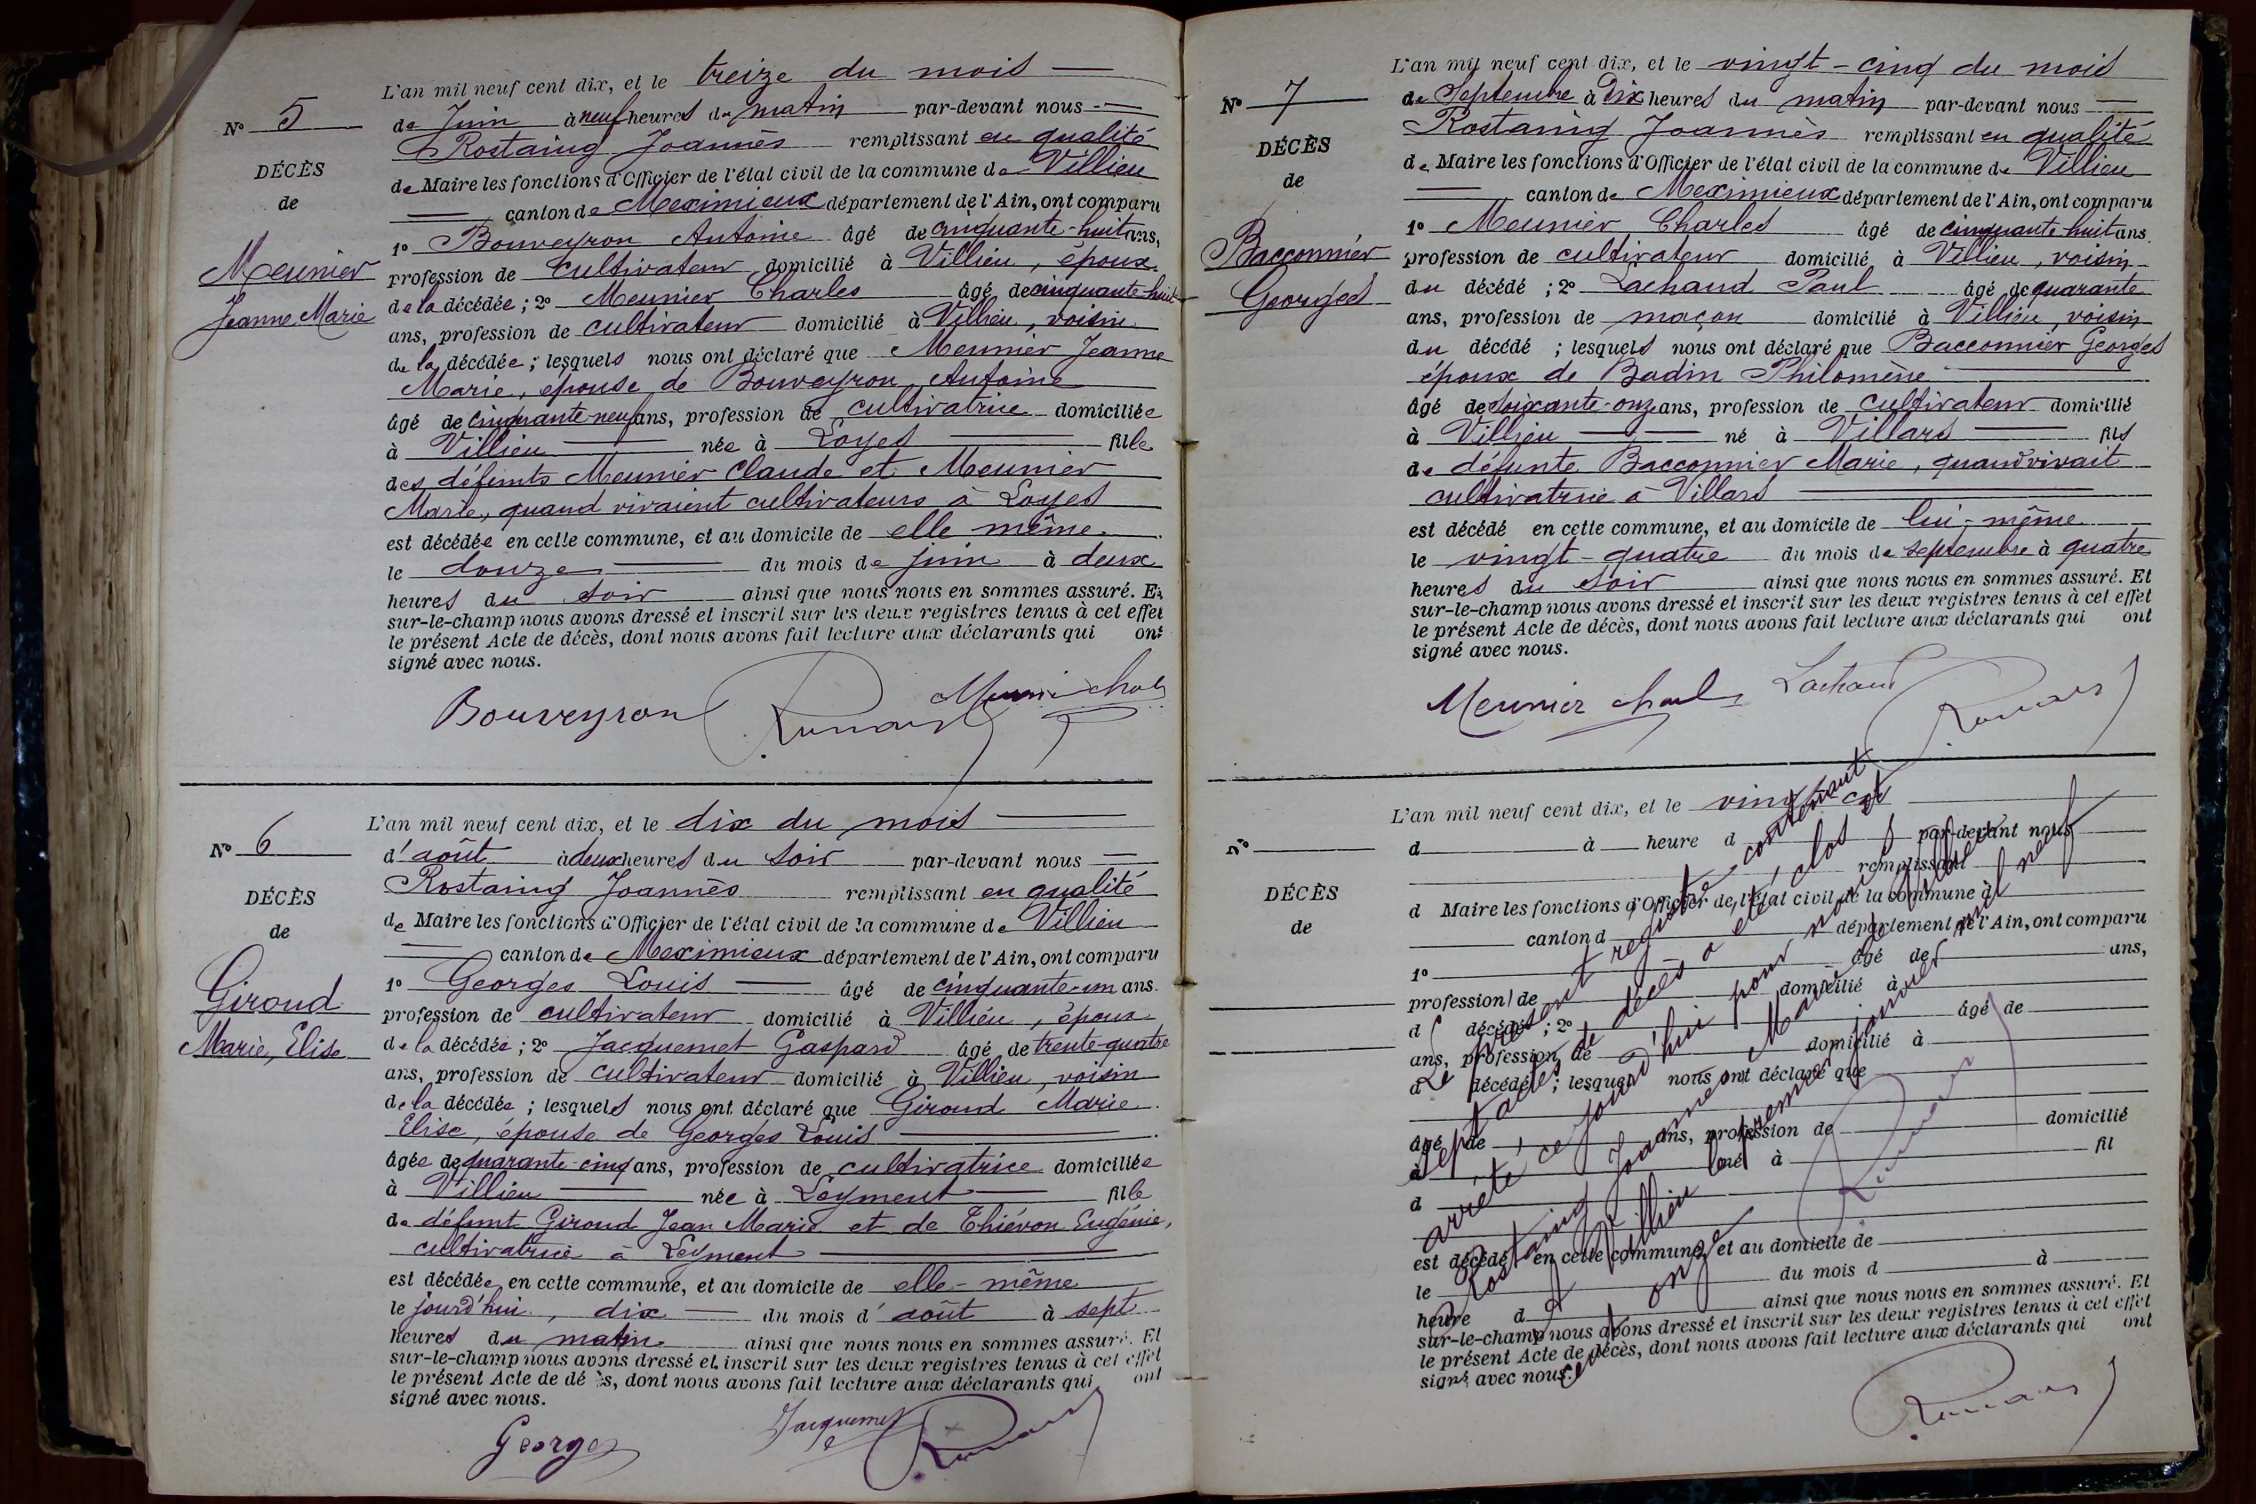 N° 5
DÉCÈS
de
Meunier
Jeanne Marie
L'an mil neuf cent dix, et le treize du mois
de Juin à neuf heures du matin par-devant nous
Rostaing Joannès remplissant en qualité
de Maire les fonctions d'Officier de l'état civil de la commune de Villieu
canton de Meximieux département de l'Ain, ont comparu
1° Bouveyron Antoine âgé de cinquante-huit ans,
profession de cultivateur domicilié à Villieu, époux
de la décédée ; 2° Meunier Charles âgé de cinquante-huit
ans, profession de cultivateur domicilié à Villieu, voisin
de la décédée ; lesquels nous ont déclaré que Meunier Jeanne
Marie, épouse de Bouveyron Antoine
âgé de cinquante-neuf ans, profession de cultivatrice domiciliée
à Villieu née à Loyes fille
des défunts Meunier Claude et Meunier
Marie, quand vivaient cultivateurs à Loyes
est décédée en cette commune, et au domicile de elle même.
le douze du mois de juin à deux
heures du soir ainsi que nous nous en sommes assuré. Et
sur-le-champ nous avons dressé et inscrit sur les deux registres tenus à cet effet
le présent Acte de décès, dont nous avons fait lecture aux déclarants qui ont
signé avec nous.
Bouveyron
N° 6
DÉCÈS
de
Giroud
Marie, Elise
L'an mil neuf cent dix, et le dix du mois
d'août à deux heures du soir par-devant nous
Rostaing Joannès remplissant en qualité
de Maire les fonctions d'Officier de l'état civil de la commune de Villieu
canton de Meximieux département de l'Ain, ont comparu
1° Georges Louis âgé de cinquante-un ans.
profession de cultivateur domicilié à Villieu, époux
de la décédée ; 2° Jacquemet Gaspard âgé de trente-quatre
ans, profession de cultivateur domicilié à Villieu, voisin
de la décédée ; lesquels nous ont déclaré que Giroud Marie
Elise, épouse de Georges Louis
âgée de quarante-cinq ans, profession de cultivatrice domiciliée
à Villieu née à Leyment fille
de défunt Giroud Jean Marie et de Thiévon Eugénie,
cultivatrice à Leyment
est décédée en cette commune, et au domicile de elle-même
le jourd'hui, dix du mois d'août à sept
heures du matin ainsi que nous nous en sommes assuré. Et
sur-le-champ nous avons dressé et inscrit sur les deux registres tenus à cet effet
le présent Acte de décès, dont nous avons fait lecture aux déclarants qui ont
signé avec nous.
Georges Jacquemet
N° 7
DÉCÈS
de
Bacconnier
Georges
L'an mil neuf cent dix, et le vingt-cinq du mois
de Septembre à Dix heures du matin par-devant nous
Rostaing Joannès remplissant en qualité
de Maire les fonctions d'Officier de l'état civil de la commune de Villieu
canton de Meximieux département de l'Ain, ont comparu
1° Meunier Charles âgé de cinquante-huit ans
profession de cultivateur domicilié à Villieu, voisin
du décédé ; 2° Lachaud Paul âgé de quarante
ans, profession de maçon domicilié à Villieu, voisin
du décédé ; lesquels nous ont déclaré que Bacconnier Georges
époux de Badin Philomène
âgé de soixante-onze ans, profession de cultivateur domicilié
à Villieu né à Villars fils
de défunte Bacconnier Marie, quand vivait
cultivatrice à Villars
est décédé en cette commune, et au domicile de lui-même
le vingt-quatre du mois de septembre à quatre
heures du soir ainsi que nous nous en sommes assuré. Et
sur-le-champ nous avons dressé et inscrit sur les deux registres tenus à cet effet
le présent Acte de décès, dont nous avons fait lecture aux déclarants qui ont
signé avec nous.
Meunier Charles Lachaud
N°
DÉCÈS
de
L'an mil neuf cent dix, et le
d à heure d par-devant nous
remplissant
d Maire les fonctions d'Officier de l'état civil de la commune d
canton d département de l'Ain, ont comparu
1° âgé de ans,
profession de domicilié à
d décédé ; 2° âgé de
ans, profession de domicilié à
d décédé ; lesquel nous ont déclaré que
âgé de ans, profession de domicilié
à né à fil
d
est décédé en cette commune, et au domicile de
le du mois d à
heure d ainsi que nous nous en sommes assuré. Et
sur-le-champ nous avons dressé et inscrit sur les deux registres tenus à cet effet
le présent Acte de décès, dont nous avons fait lecture aux déclarants qui ont
signé avec nous.
Le présent registre contenant
sept actes de décès a été clos et
arrêté ce jourd'hui par nous
Rostaing Joannès Maire de Villieu
A Villieu le premier janvier mil neuf
cent onze